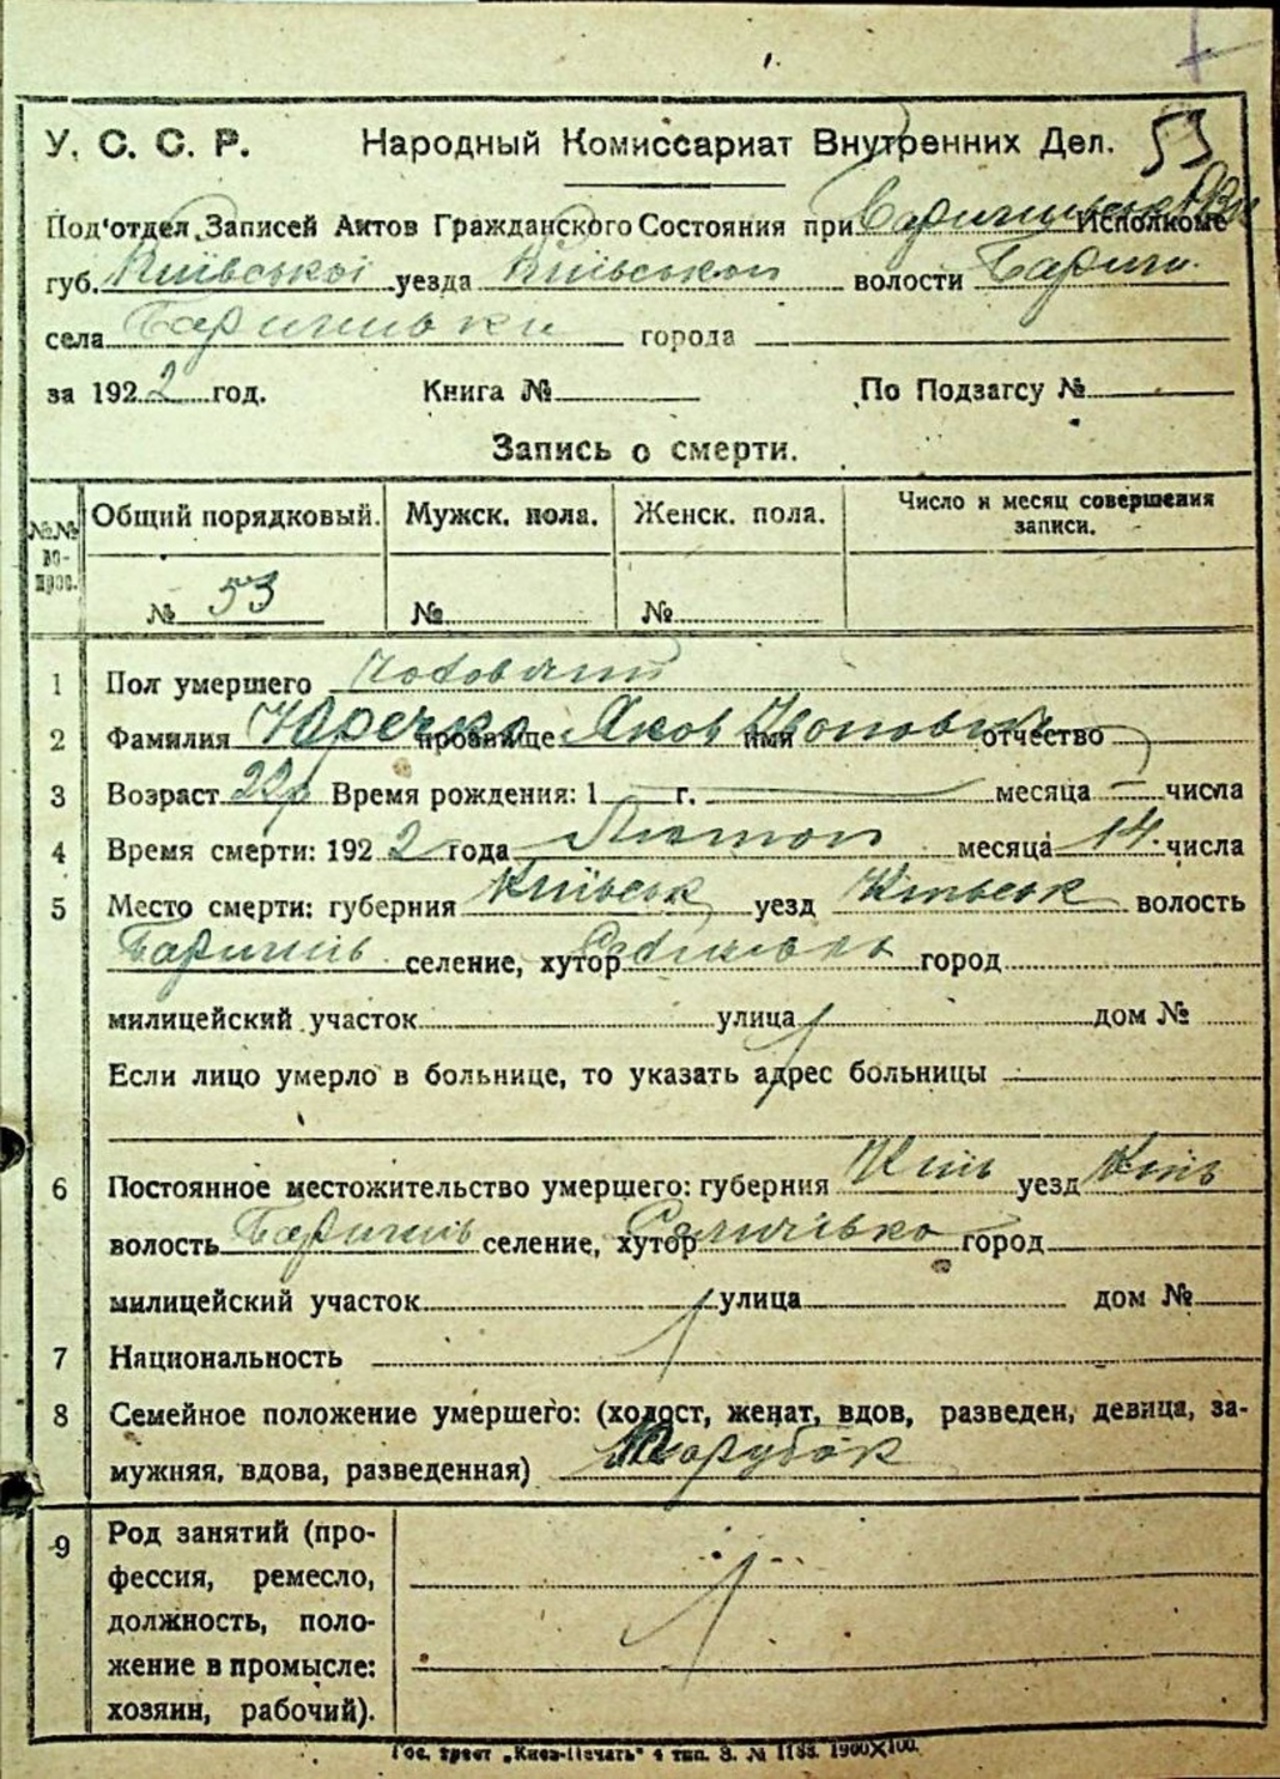 У. С. С. Р. Народный Комиссариат Внутренних Дел. 53
Под'отдел Записей Актов Гражданского Состояния при Исполкоме
губ. Київської уезда Київського волости Бариш.
села Баришівки города
за 1922 год. Книга № По Подзагсу №
Запись о смерти.
№№ вопрос. Общий порядковый. Мужск. пола. Женск. пола. Число и месяц совершения записи.
№ 53 № №
1 Пол умершего Чоловічий
2 Фамилия Юречко прозвище Яков имя отчество
3 Возраст 22р Время рождения: 1 г. месяца числа
4 Время смерти: 1922 года Лютого месяца 14 числа
5 Место смерти: губерния Київськ уезд Київськ волость
Баришів селение, хутор город
милицейский участок улица дом №
Если лицо умерло в больнице, то указать адрес больницы
6 Постоянное местожительство умершего: губерния Київ уезд Київ
волость Баришів селение, хутор город
милицейский участок улица дом №
7 Национальность
8 Семейное положение умершего: (холост, женат, вдов, разведен, девица, за-
мужняя, вдова, разведенная) Парубок
9 Род занятий (про-
фессия, ремесло,
должность, поло-
жение в промысле:
хозяин, рабочий).
Гос. трест „Киев-Печать" 4 тип. З. № 1183. 1900X100.